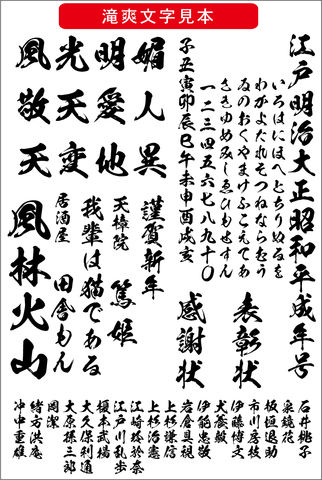 滝爽文字見本
江戸明治大正昭和平成年号
いろはにほへとちりぬるを
わかよたれそつねならむう
ゐのおくやまけふこえてあ
さきゆめみしゑひもせすん
一二三四五六七八九十〇
子丑寅卯辰巳午未申酉戌亥
表彰状
感謝状
媚人異
明愛他
光天変
風敬天
謹賀新年
天璋院
篤姫
我輩は猫である
居酒屋
田舎もん
風林火山
石井桃子
泉鏡花
板垣退助
市川房枝
伊藤博文
犬養毅
伊能忠敬
岩倉具視
上杉謙信
上杉治憲
江崎玲於奈
江戸川乱歩
榎本武揚
大久保利通
大原孫三郎
岡潔
緒方洪庵
冲中重雄